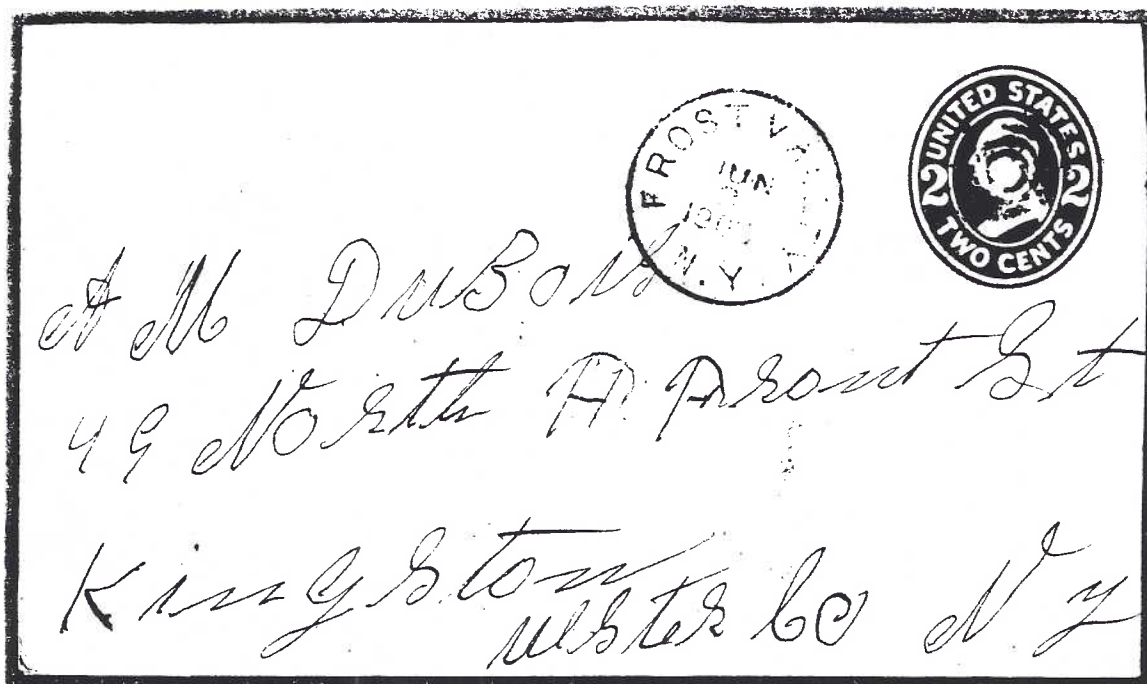 FROST VALLEY
JUN
N.Y.
UNITED STATES
2 2
TWO CENTS
A M DuBois
49 North Front St
Kingston
Ulster Co N Y